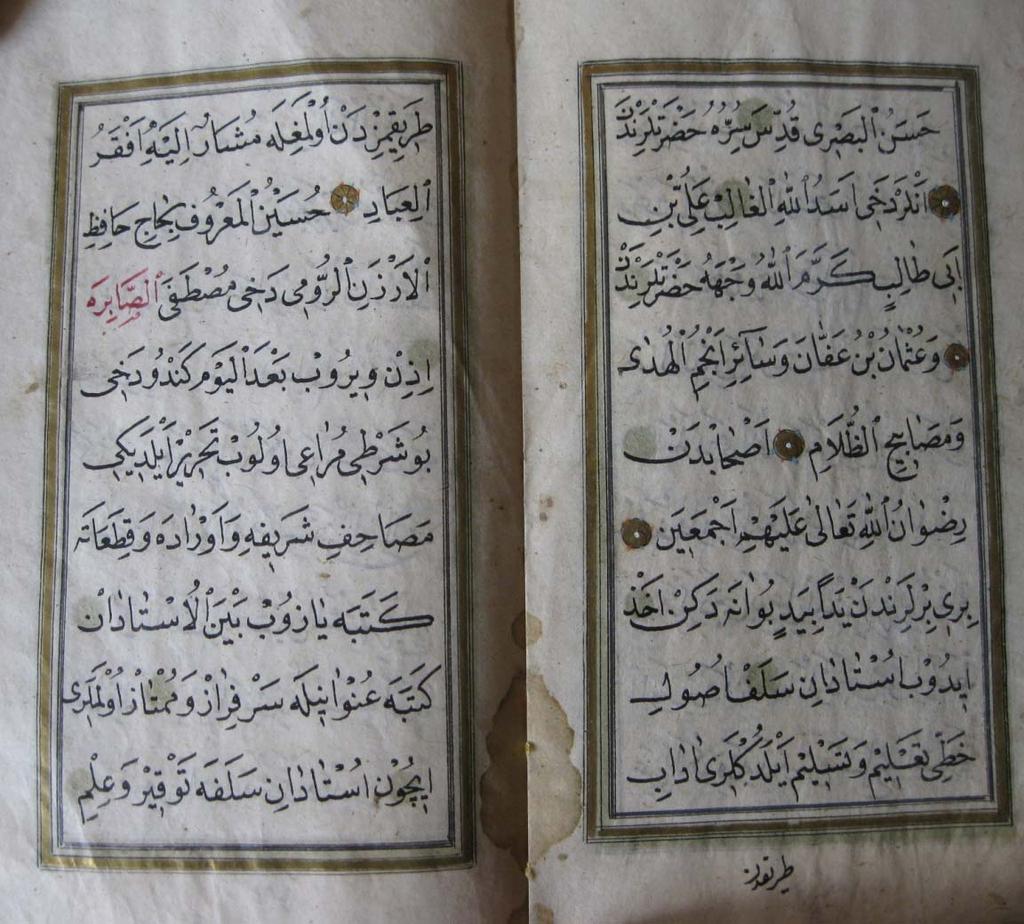 حَسَنُ الْبَصْرِى قُدِّسَ سِرُّهُ حَضْرَتْلَرِنْدَنْ
اَنْلَرْدَخِى اَسَدُ اللهِ الْغَالِبْ عَلِىُّ بْنِ
اَبِى طَالِبٍ كَرَّمَ اللهُ وَجْهَهُ حَضْرَتْلَرِنْدَنْ
وَعُثْمَانُ بْنُ عَفَّانَ وَسَائِرِ اَنْجُمِ الْهُدٰى
وَمَصَابِيحِ الظَّلَامِ اَصْحَابْدَنْ
رِضْوَانُ اللهِ تَعَالٰى عَلَيْهِمْ اَجْمَعِينَ
بِرِى بِرْلَرِنْدَنْ يَدًا بِيَدٍ بُو اٰنَه دَكِنْ اَخْذ
اِيدُوبْ اُسْتَادَانِ سَلَفْ اُصُولِ
خَطِّى تَعْلِيمْ وَتَسْلِيمْ اَيْلَدِكْلَرِى اٰدَابِ
طريقدن
طَرِيقِمِزْدَنْ اُولْمَغِلَه مُشَارٌ اِلَيْهِ اَفْقَرُ
الْعِبَادِ حُسَيْنُ الْمَعْرُوفْ بِحَاجِ حَافِظِ
الْاَرْزَنِ الرُّومِى دَخِى مُصْطَفَى الصَّابِرَه
اِذِنْ وِيرُوبْ بَعْدَ الْيَوْمْ كَنْدُو دَخِى
بُو شَرْطِى مُرَاعِى اُولُوبْ تَحْرِيرْ اَيْلَدِيكِى
مَصَاحِفِ شَرِيفَه وَاَوْرَادَه وَقِطَعَاتَه
كَتَبَه يَازُوبْ بَيْنَ الْاُسْتَادَانْ
كَتَبَه عُنْوَانِيلَه سَرْفِرَازْ وَمُمْتَازْ اُولْمَلَرِى
اِيچُونْ اُسْتَادَانِ سَلَفَه تَوْقِيرْ وَعِلْمِ